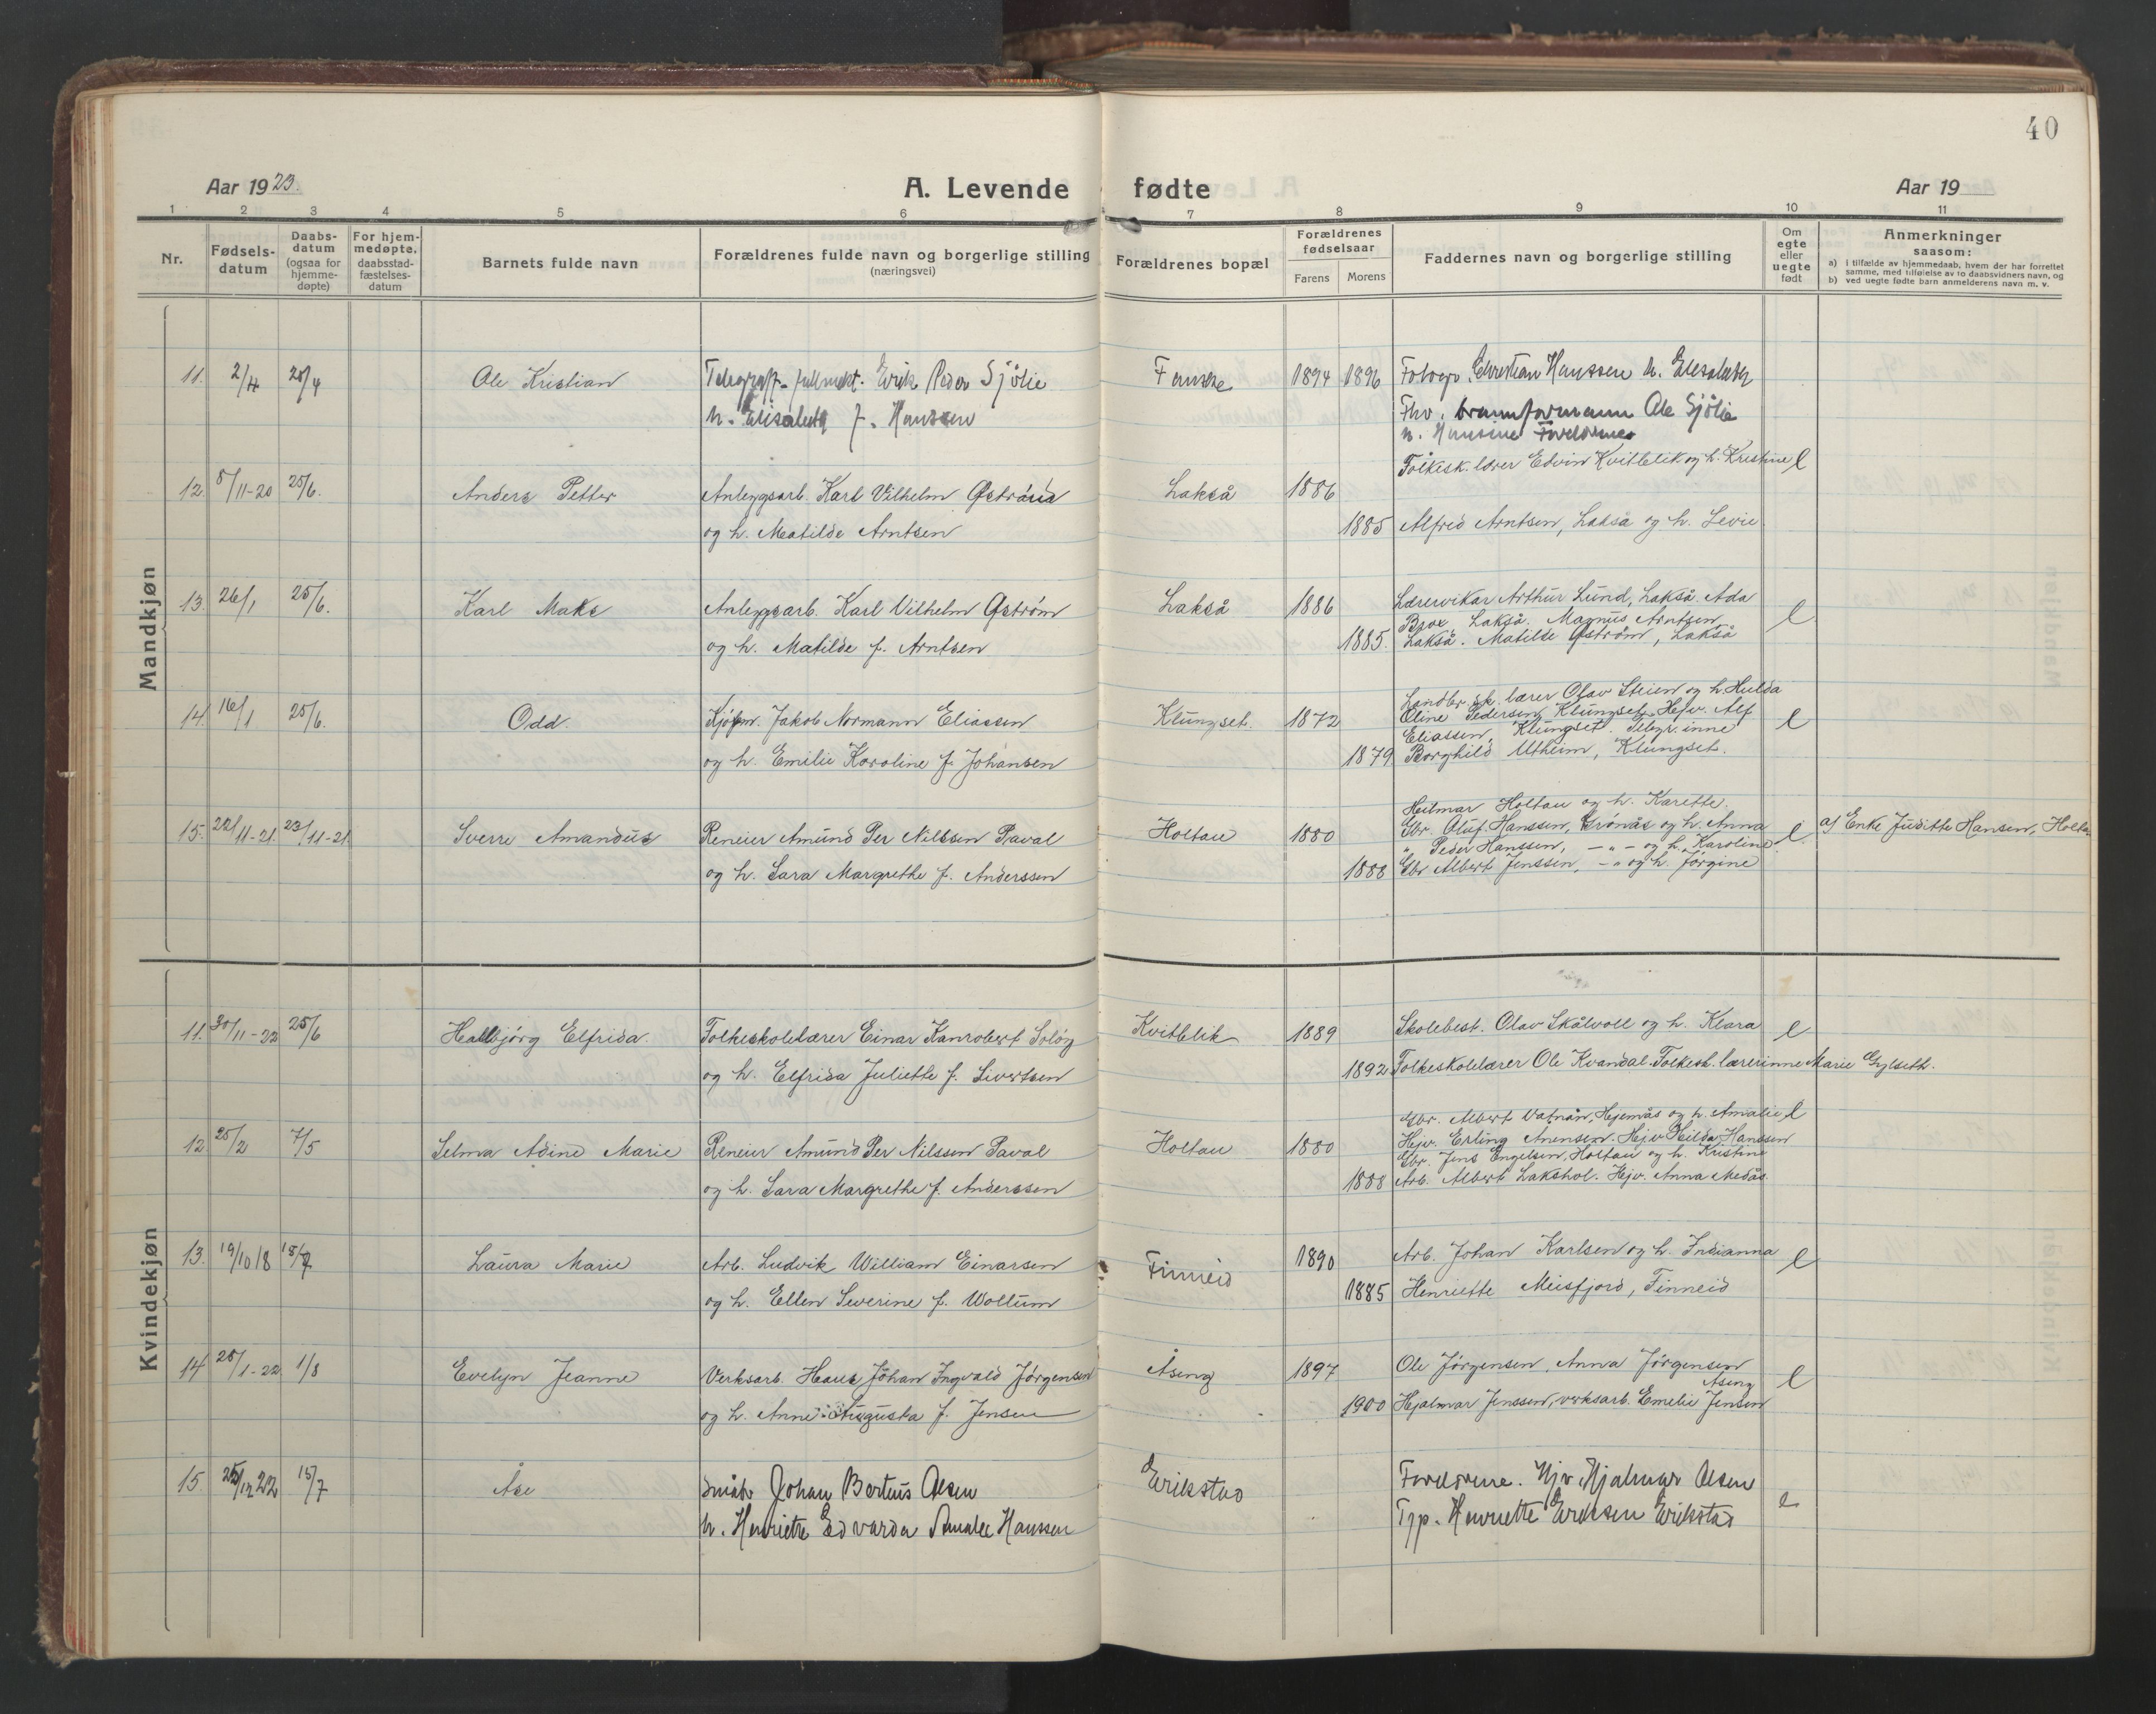 40
Aar 1923.
A. Levende fødte
Aar 19
1 2 3 4 5 6 7 8 9 10 11
Nr.
Fødsels-
datum
Daabs-
datum
(ogsaa for
hjemme-
døpte)
For hjem-
medøpte,
daabsstad-
fæstelses-
datum
Barnets fulde navn
Forældrenes fulde navn og borgerlige stilling
(næringsvei)
Forældrenes bopæl
Forældrenes
fødselsaar
Farens Morens
Faddernes navn og borgerlige stilling
Om
egte
eller
uegte
født
Anmerkninger
saasom:
a) i tilfælde av hjemmedaab, hvem der har forrettet
samme, med tilføielse av to daabsvidners navn, og
b) ved uegte fødte barn anmelderens navn m. v.
Mandkjøn
11. 2/4 Ole Kristian Telegraf-fullmekt. Erik Peder Sjölie Fauske 1894 1896 Fotogr. Christian Hanssen h. Elisabeth
h. Elisabeth f. Hanssen Fhv. Ole Sjölie
h. Hansine Foreldrene
Folkesk.lærer Edvin Kvitblik og h. Kristine e
12. 8/11-20 25/6. Anders Petter Anleggsarb. Karl Vilhelm Øström Lakså 1886
og h. Matilde Arntsen 1885 Alfred Arntsen, Lakså og h. Levie
13. 26/1 25/6. Karl Maks Anleggsarb. Karl Vilhelm Øström Lakså 1886 Lærervikar Arthur Lund, Lakså. Ada e
Brox, Lakså. Magnus Arntsen
og h. Matilde f. Arntsen 1885. Lakså. Matilde Øström, Lakså
14. 16/1 25/6. Odd. Kjøbm. Jakob Normann Eliassen Klungset. 1872 Landbr.sk. lærer Olav Steien og h. Hulda e
Eline Pedersen, Klungset. Hejv. Alf
Eliassen, Klungset. Telegr.inne
og h. Emilie Karoline f. Johansen 1879 Borghild Utheim, Klungset.
15. 22/11-21. 23/11-21. Sverre Amandus Reneier Amund Per Nilssen Paval Holtan 1880 Heilmar Holtan og h. Karette. e af Enke Juditte Hansen, Holtan
Gbr. Oluf Hanssen, Grönås og h. Anna
" Peder Hanssen, - " - og h. Karoline
og h. Sara Margrethe f. Anderssen 1888 Gbr Albert Jenssen, - " og h. Jörgine
Kvindekjøn
11. 30/11-22 25/6 Hallbjörg Elfrida. Folkeskolelærer Einar Kanrobert Solöy Kvitblik 1889 Skolebest. Olav Skålvoll og h. Klara e
og h. Elfrida Juliette f. Sivertsen 1892 Folkeskolelærer Ole Kvandal. Folkesk.lærerinne Marie Gylseth.
12 25/2 7/5 Selma Adine Marie Reneier Amund Per Nilssen Paval Holtan 1880 Gbr. Albert Vatnån, Hjemås og h. Amalie e
Hejv. Erling Anensen. Hejv Hilda Hanssen
Gbr. Jens Engelsen, Holtan og h. Kristine
og h. Sara Margrethe f. Anderssen 1888 Arb. Albert Lakshol. Hejv. Anna Medås.
13. 19/10 18 Laura Marie Arb. Ludvik William Einarsen Finneid 1890 Arb. Johan Karlsen og h. Indianna e
og h. Ellen Severine f. Wollum 1885 Henriette Meisfjord, Finneid
14 25/1-22 1/8 Evelyn Jeanne Verksarb. Hans Johan Ingvald Jörgensen Åseng 1897 Ole Jörgensen, Anna Jörgensen e
Åseng
og h. Anne Augusta f. Jensen 1900 Hjalmar Jenssen, verksarb. Emelie Jensen
15. 15/7 Åse Småbr Johan Berteus Olsen Erikstad Foreldrene. Hjv. Hjalmar Olsen e
h. Henriette Edvarda Amalie Hanssen Tjp. Henriette Eriksen Erikstad